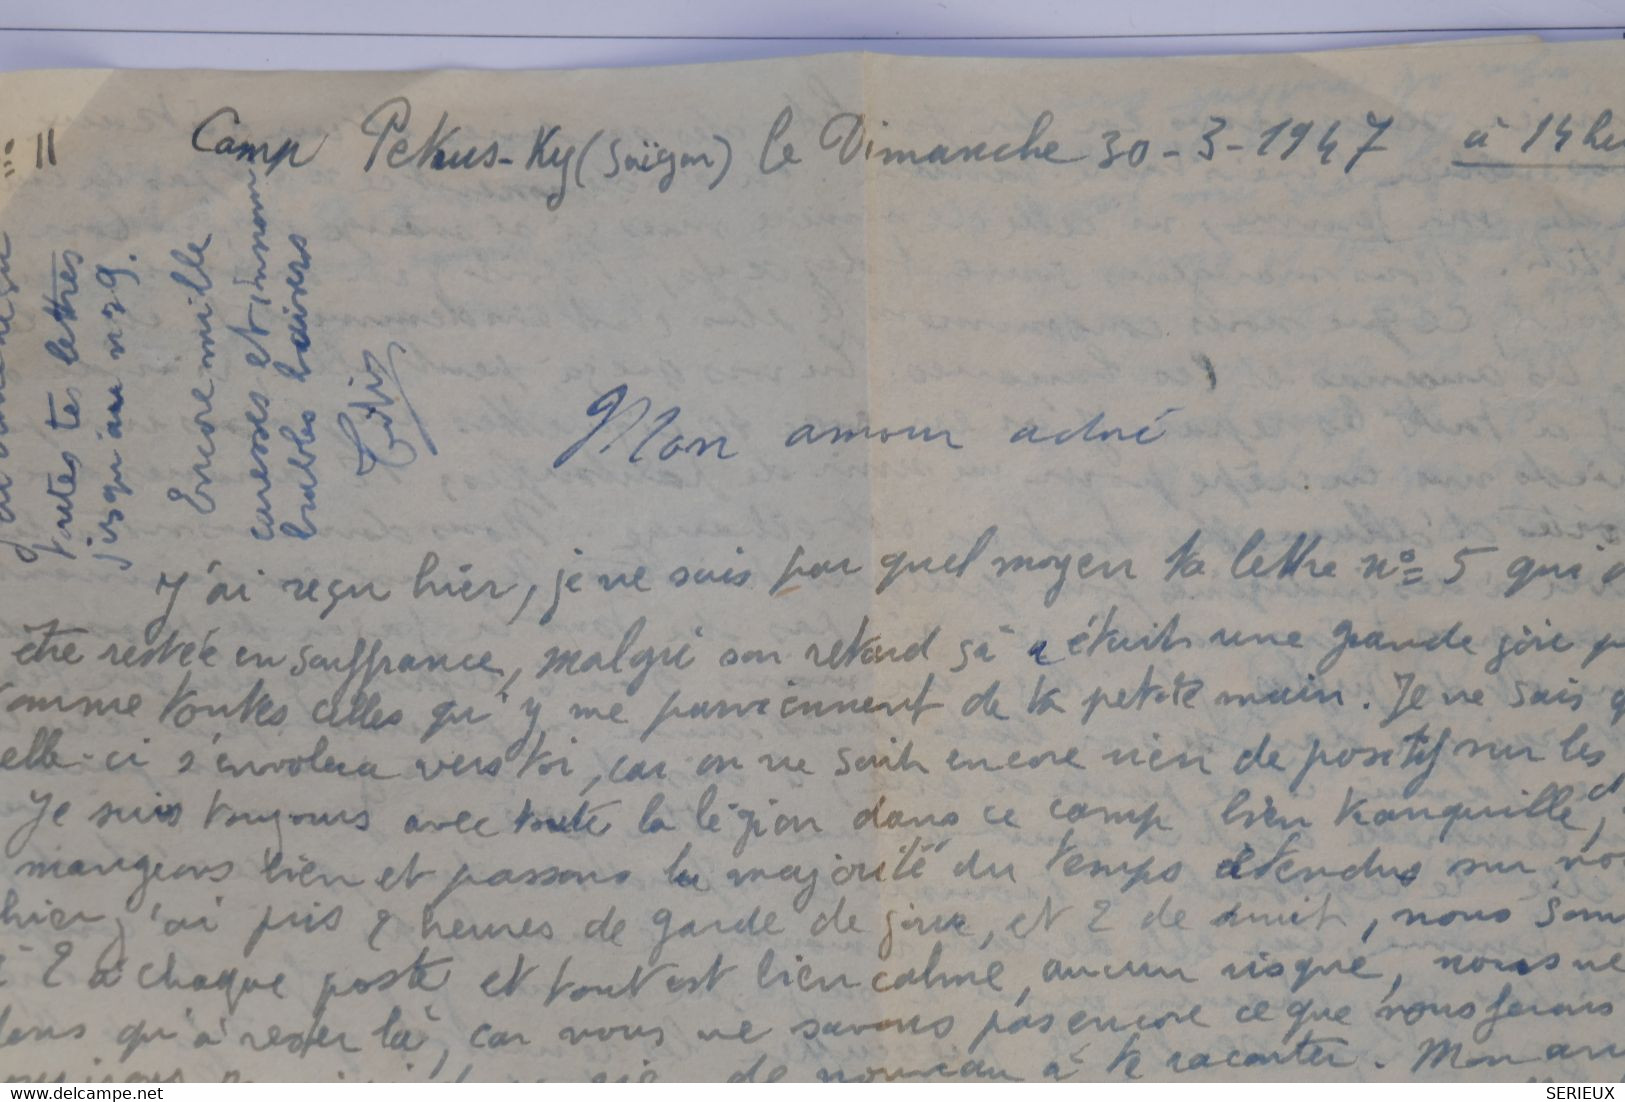 n° 11 Camp Petrus-Ky (Saïgon) le Dimanche 30-3-1947 à 14 heu
toutes tes lettres
jusqu'au n° 29.
Encore mille
caresses et innom
brables baisers
Mon amour adoré
J'ai reçu hier, je ne sais par quel moyen ta lettre n° 5 qui
être restée en souffrance, malgré son retard sà a était une grande joie
comme toutes celles qu'y me parviennent de ta petite main. Je ne sais
elle-ci s'envolera vers toi, car on ne sait encore rien de positif sur les
Je suis toujours avec toute la légion dans ce camp bien tranquille, et
mangeons bien et passons la majorité du temps étendus sur
hier j'ai pris 2 heures de garde de jour, et 2 de nuit, nous som
à 2 à chaque poste et tout est bien calme, aucun risque, nous ne
qu'à rester là, car nous ne savons pas encore ce que nous ferons
de nouveau à te raconter. Mon
SERIEUX